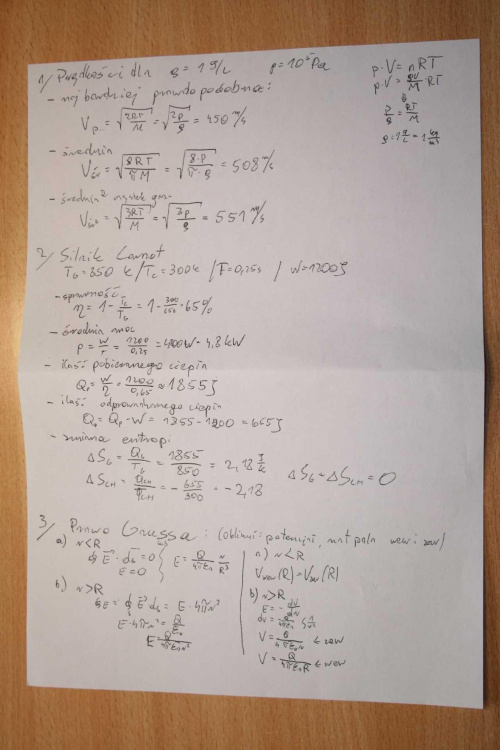 1/ Prędkości dla ρ = 1 g/L p = 10⁵ Pa
- najbardziej prawdopodobna:
V_p = √(2RT/M) = √(2p/ρ) = 450 m/s
- średnia
V_śr = √(8RT/πM) = √(8·p/π·ρ) = 508 m/s
- średnia²
V_śr² = √(3RT/M) = √(3p/ρ) = 551 m/s
p·V = nRT
p·V = /M · RT
p/ρ = RT/M
ρ = 1 g/L = 1 kg/m³
2/ Silnik Carnot
T_G = 850 K / T_c = 300 K / F = 0,25s / W = 1200 J
- sprawność
η = 1 - = 1 - 300/850 = 65%
- średnia moc
P = W/r = 1200/0,25 = W = 4,8 kW
- ilość pobieranego ciepła
Q_p = W/η = 1200/0,65 ≈ 1855 J
- ilość odprowadzanego ciepła
Q_o = Q_p - W = - 1200 = 655 J
- zmiana entropi
ΔS_G = Q_G/T_G = 1855/850 = 2,18 J/K
ΔS_CH = Q_CH/T_CH = - 655/300 = -2,18
ΔS_G + ΔS_CH = 0
3/ Prawo Gaussa: (oblicz: potencjał, nat. pola wew i zew)
a) r<R
∮ E · ds = 0
E = 0
E = Q/4πε₀ r/R³
b) r>R
= ∮ E ds = E · 4πr²
E · 4πr² = Q/ε₀
E = Q/4πε₀r²
a) r<R
V_wew(R) = V_zew(R)
b) r>R
E = - dV/dr
dV =
V = Q/4πε₀r ← zew
V = Q/4πε₀R ← wew